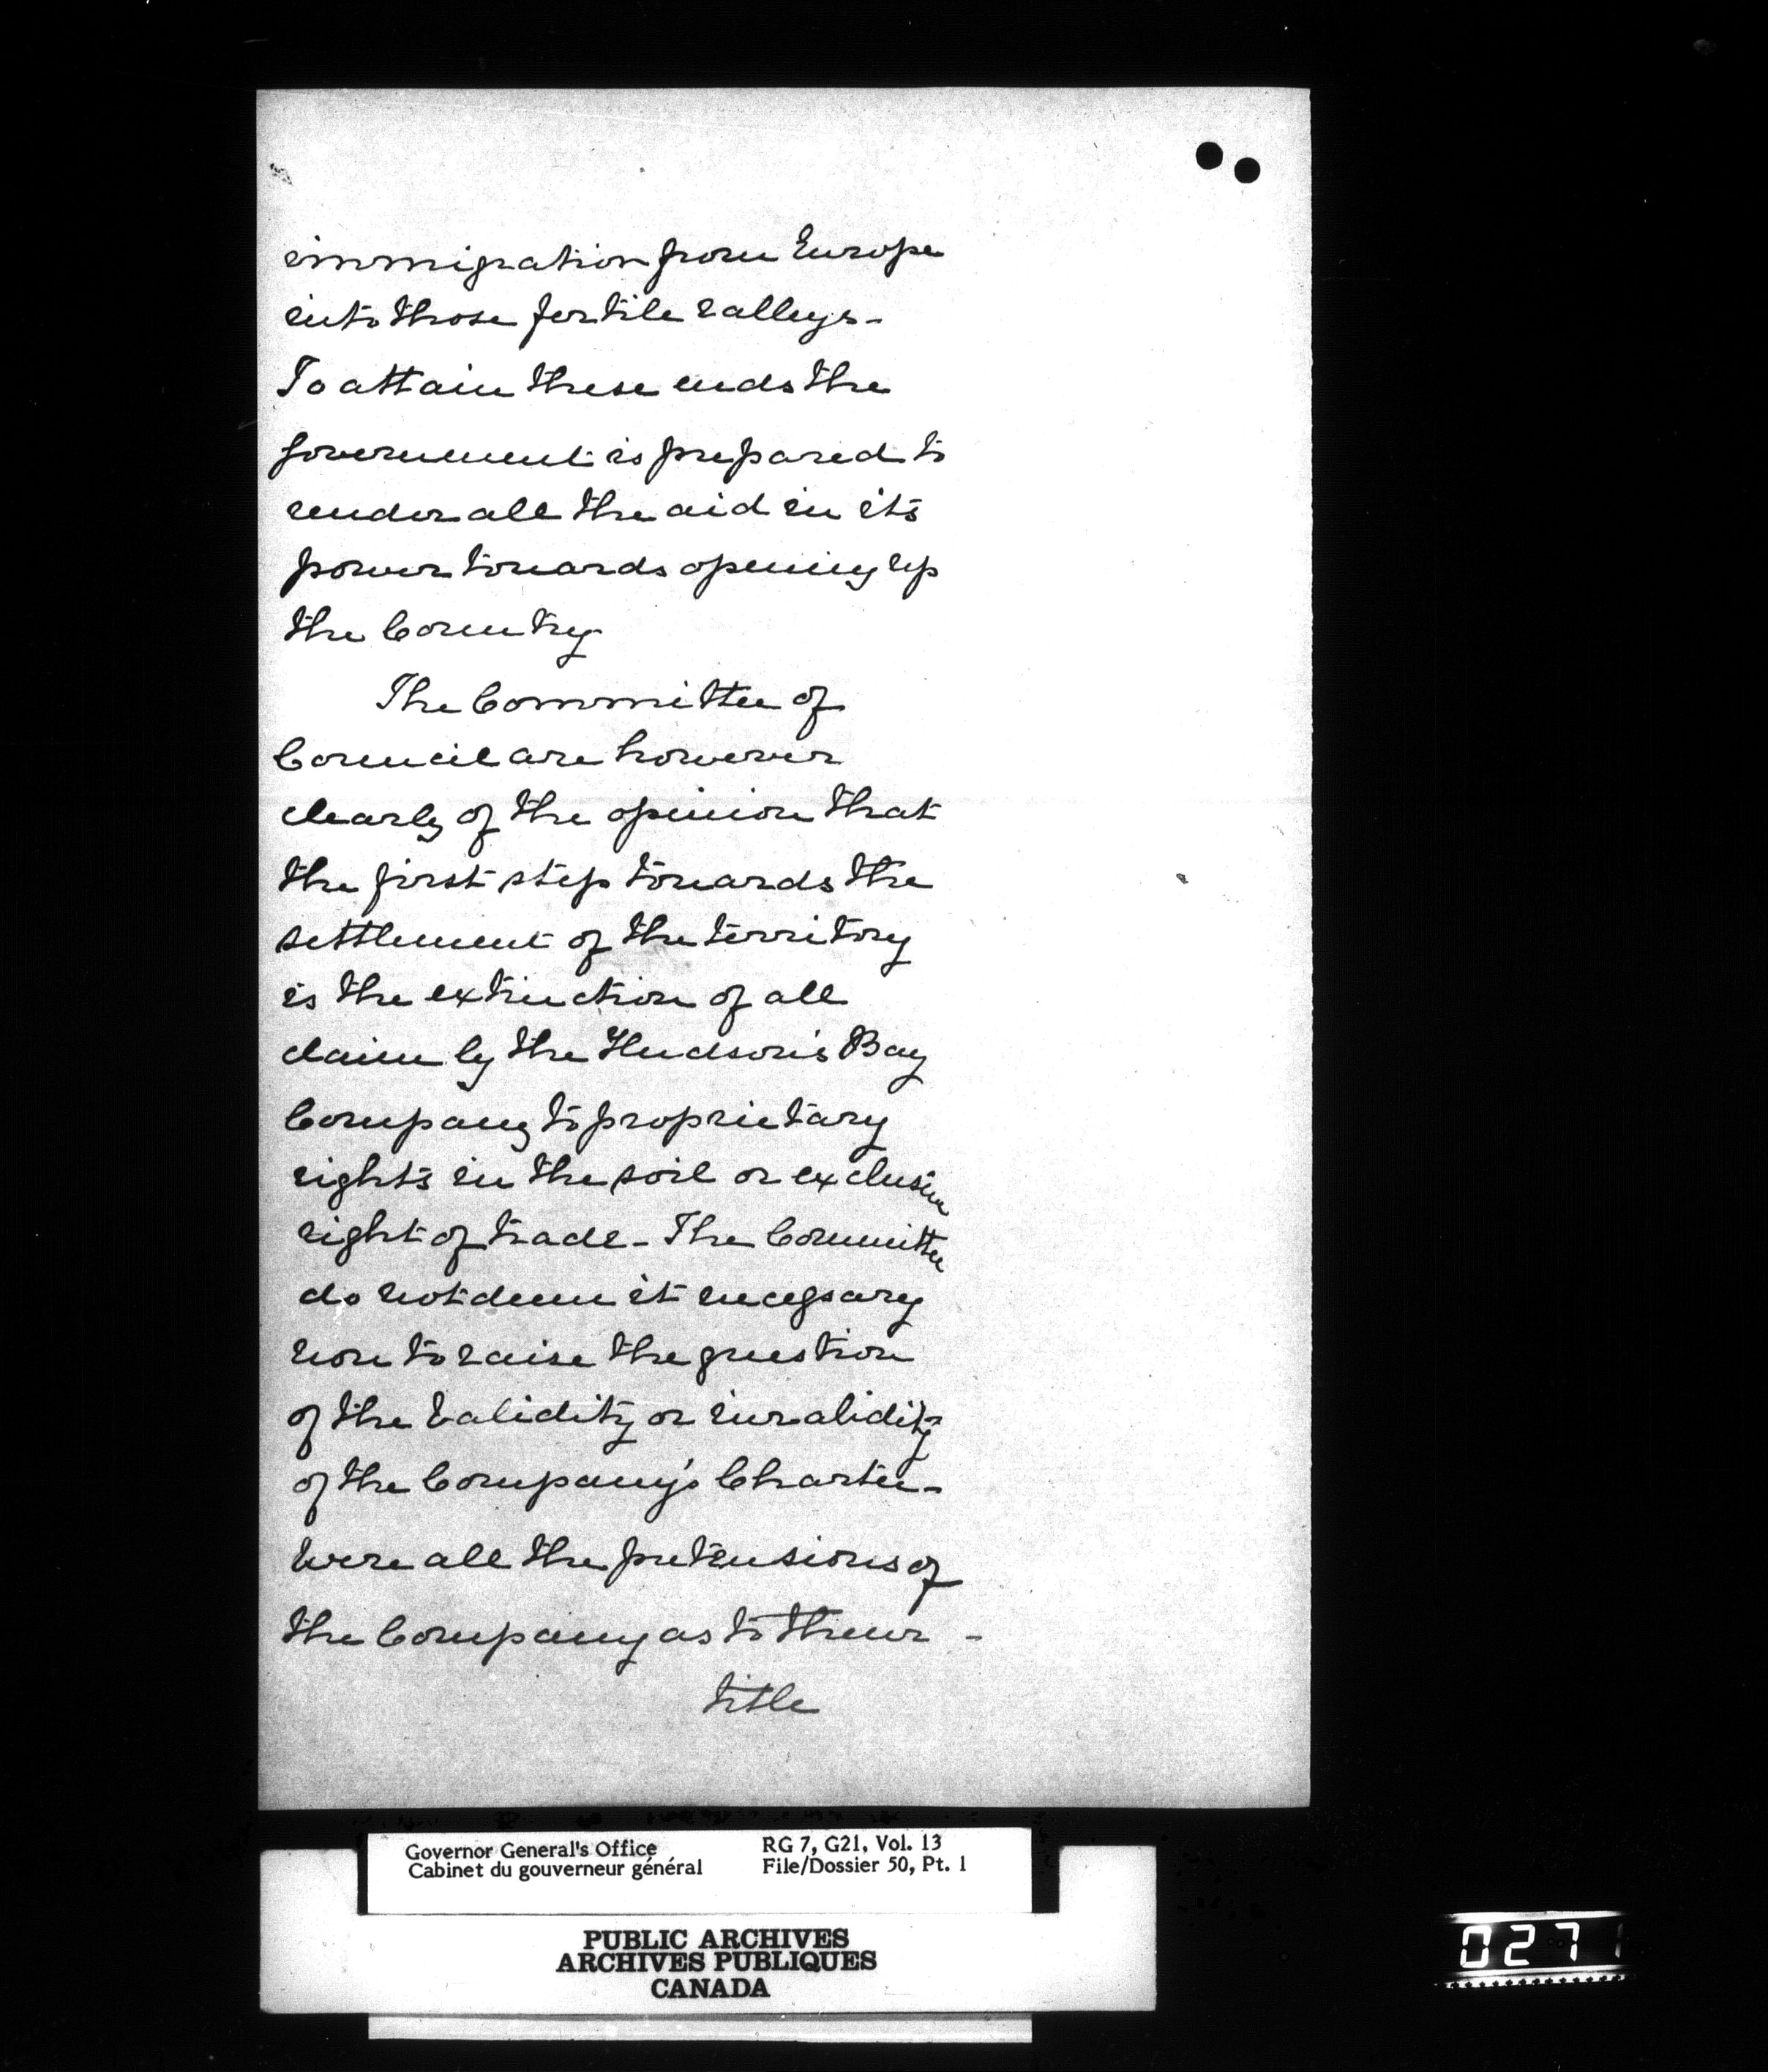 immigration from Europe
into those fertile valleys -
To attain these ends the
Government is prepared to
render all the aid in its
power towards opening up
the Country
The Committee of
Council are however
clearly of the opinion that
the first step towards the
settlement of the territory
is the extinction of all
claim by the Hudson's Bay
Company to proprietary
rights in the soil or exclusive
right of trade - The Committee
do not deem it necessary
now to raise the question
of the validity or invalidity
of the Company's Charter -
Were all the pretensions of
the Company as to their -
title
Governor General's Office RG 7, G21, Vol. 13
Cabinet du gouverneur général File/Dossier 50, Pt. 1
PUBLIC ARCHIVES
ARCHIVES PUBLIQUES
CANADA
0271